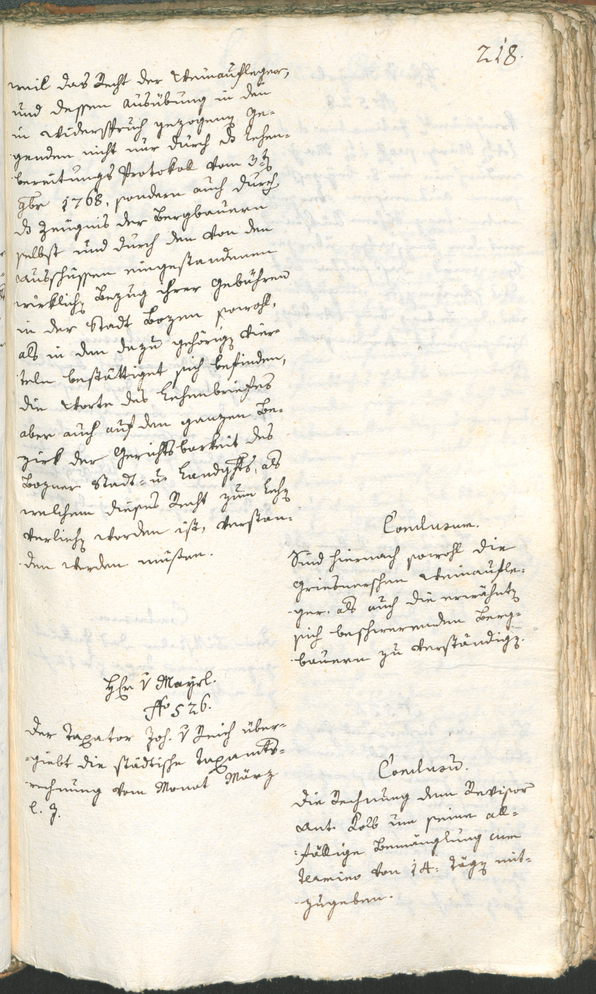 218.
weil das Recht der Weinaufleger,
und dessen Ausübung in den
in Widerspruch gezogenen Ge-
genden nicht nur durch Lehen-
bereitungs Protokol vom 3t
9ber 1768, sondern auch durch
Zeugnis der Bergbauern
selbst und durch den von den
Ausschüssen eingestandenen
wirklich Bezug ihrer Gebühren
in der Stadt Bozen sowohl,
als in den dazu gehörig Vier-
teln bestättiget sich befinden,
die Worte des Lehenbriefes
aber auch auf den ganzen Be-
zirk der Gerichtsbarkeit des
Bozner Stadt- u Landgchts, als
welchem dieses Recht zum Lehen
verlieh worden ist, verstan-
den werden müsten.
Conclusum.
Sind hiernach sowohl die
Griesnerschen Weinaufle-
ger, als auch die erwähnte
sich beschwerenden Berg-
bauern zu verständig.
Hr v Mayrl.
No 526.
Der Taxator Joh. v Reich über-
giebt die städtische Taxamts-
rechnung vom Monat März
l. J.
Conclusum.
Die Rechnung dem Revisor
Ant. Kolb um seine all-
fällige Bemänglung cum
Termino von 14. Täg mit-
zugeben.